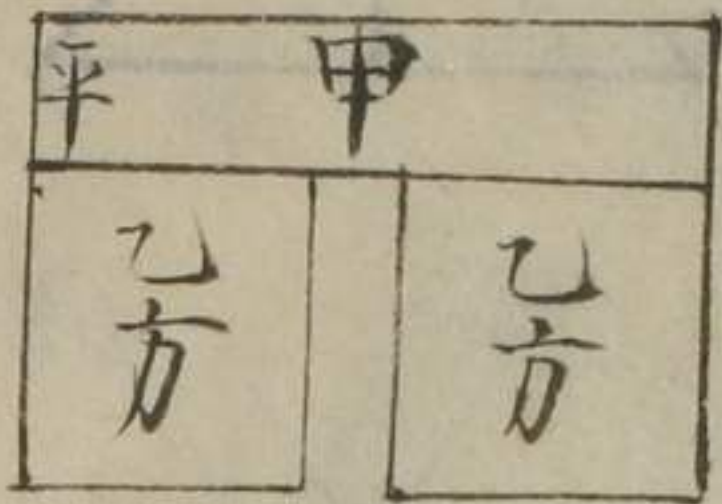 平 甲
乙方
乙方